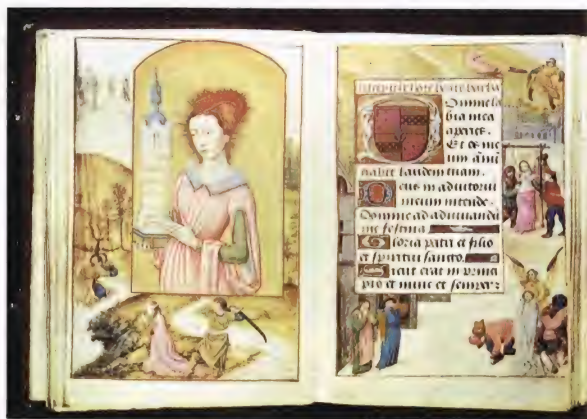 hore beate barba
Domine la
bia mea
aperies.
Et os me
um ānū
ciabit laudem tuam.
Deus in adiutoriū
meum intende.
Domine ad adiuuandū
me festina
Gloria patri et filio
et spiritui sancto.
Sicut erat in princi
pio et nunc et semper: